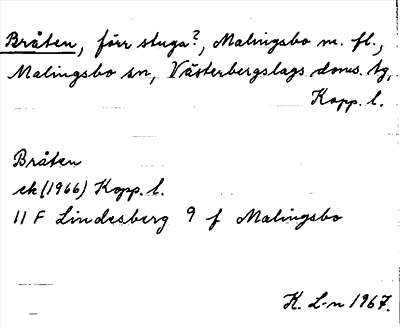 Bråten, förr stuga?, Malingsbo m. fl.,
Malingsbo sn, Västerbergslags doms. tg,
Kopp. l.
Bråten
ek (1966) Kopp. l.
11 F Lindesberg 9 f Malingsbo
K. L-n 1967.